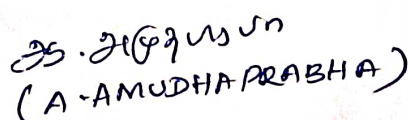 அ. அமுதபிரபா
(A-AMUDHAPRABHA)